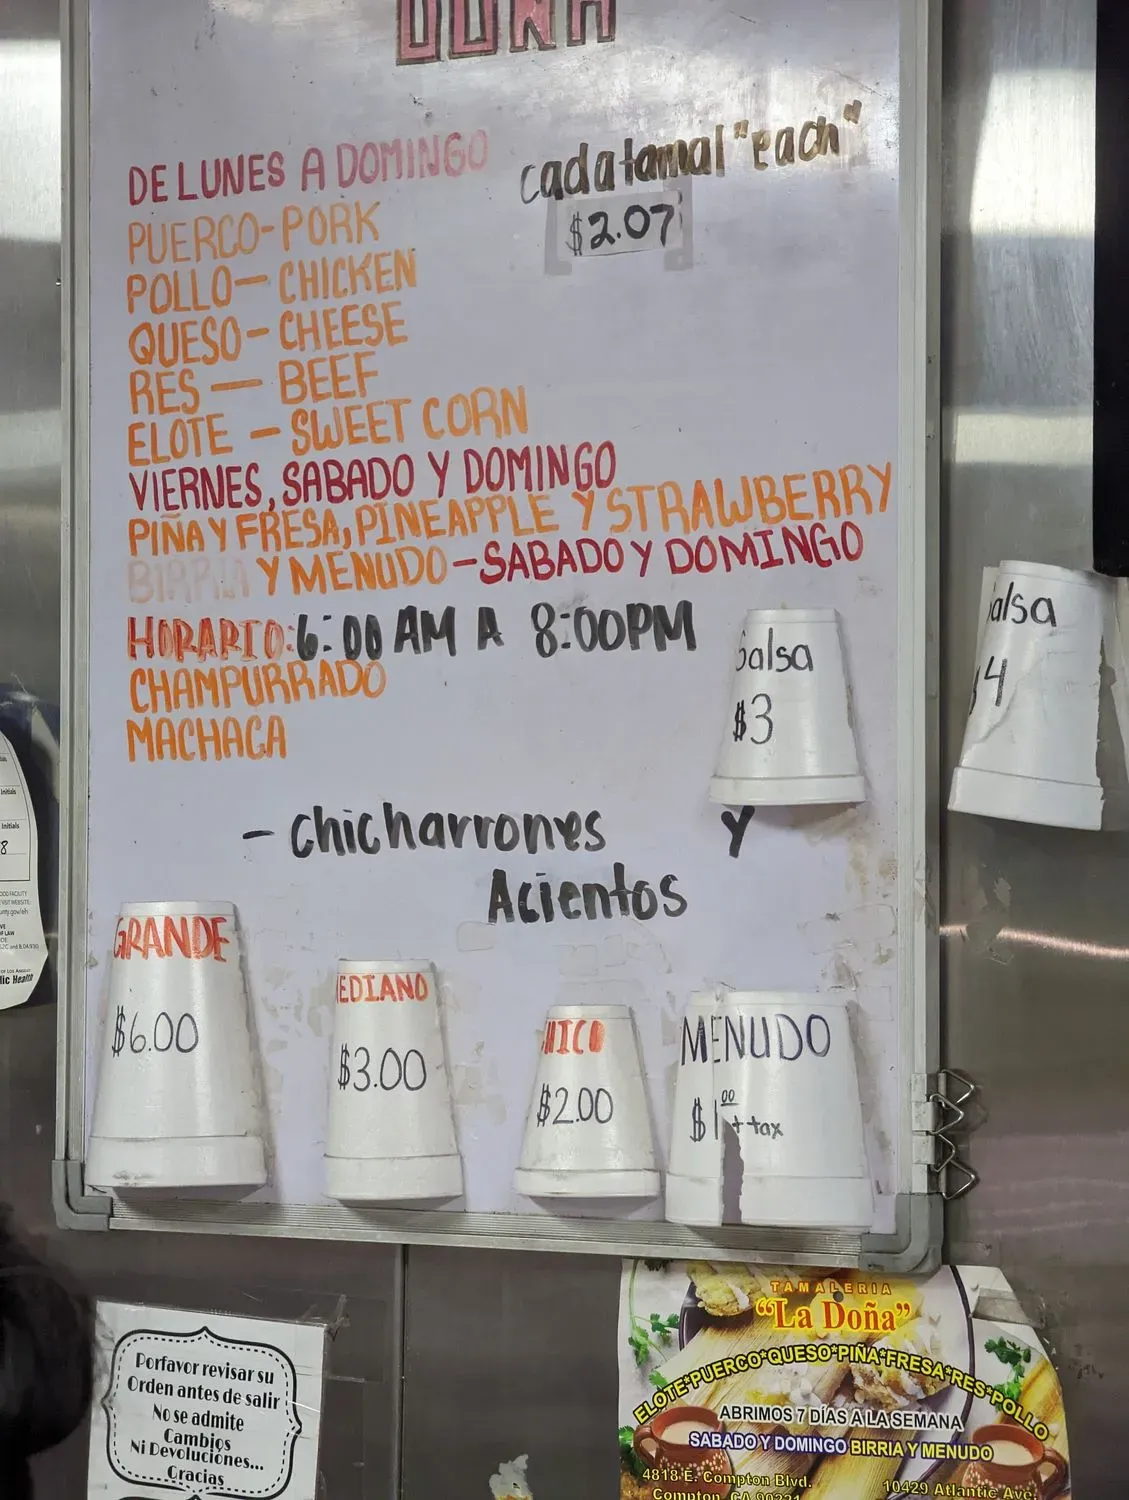 DOÑA
DE LUNES A DOMINGO
cada tamal "each"
$2.07
PUERCO-PORK
POLLO-CHICKEN
QUESO-CHEESE
RES-BEEF
ELOTE-SWEET CORN
VIERNES, SABADO Y DOMINGO
PIÑA Y FRESA, PINEAPPLE Y STRAWBERRY
BIRRIA Y MENUDO-SABADO Y DOMINGO
HORARIO: 6:00 AM A 8:00PM
CHAMPURRADO
MACHACA
Salsa
$3
alsa
$4
- chicharrones y
Acientos
GRANDE
$6.00
EDIANO
$3.00
HICO
$2.00
MENUDO
+ tax
Initials
Initials
8
Porfavor revisar su
Orden antes de salir
No se admite
Cambios
Ni Devoluciones...
Gracias
TAMALERIA
"La Doña"
ELOTE*PUERCO*QUESO*PIÑA*FRESA*RES*POLLO
ABRIMOS 7 DÍAS A LA SEMANA
SABADO Y DOMINGO BIRRIA Y MENUDO
4818 E. Compton Blvd.
Compton, CA 90221
10429 Atlantic Ave.